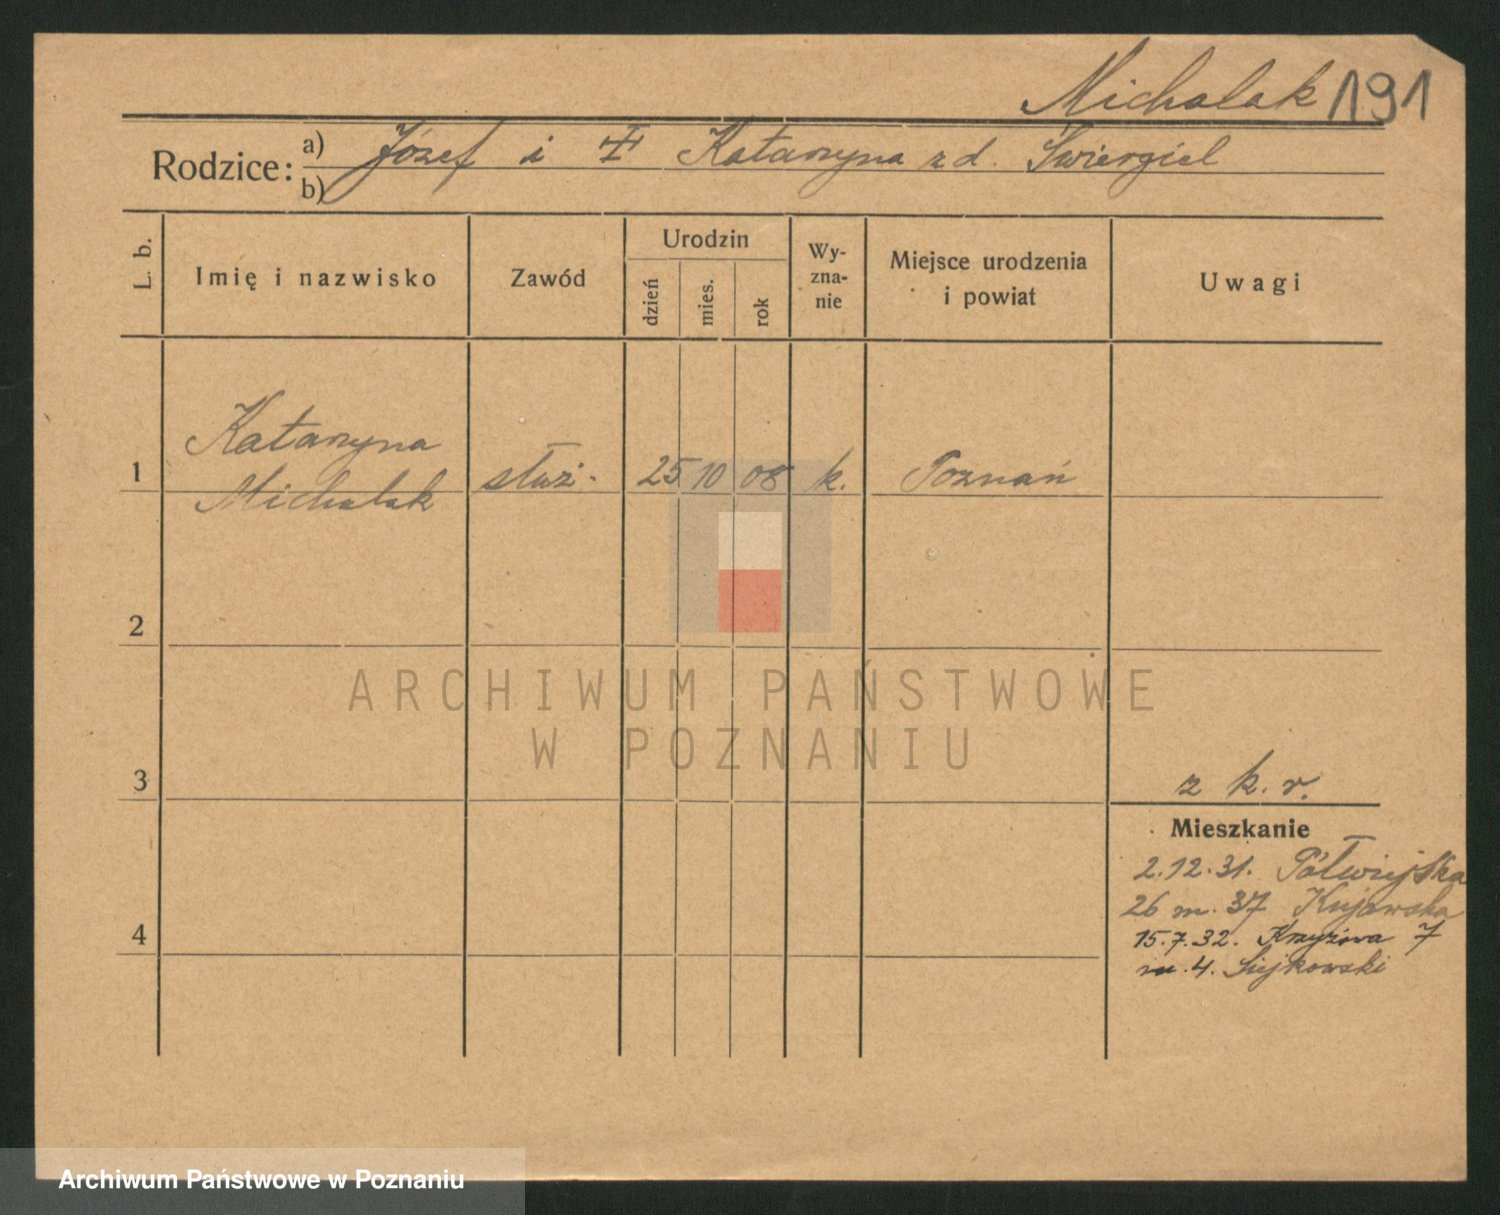 Michalak 191
Rodzice: a) Józef i Katarzyna z d. Świergiel
b)
L. b.
Imię i nazwisko
Zawód
Urodzin
dzień
mies.
rok
Wy-
zna-
nie
Miejsce urodzenia
i powiat
Uwagi
Katarzyna
1 Michalak służ. 25 10 08 k. Poznań
2
3
z k. r.
Mieszkanie
2.12.31. Półwiejska
26 m. 37 Kujawska
15.7.32. Krzyżowa 7
m. 4.
4
ARCHIWUM PAŃSTWOWE
W POZNANIU
Archiwum Państwowe w Poznaniu